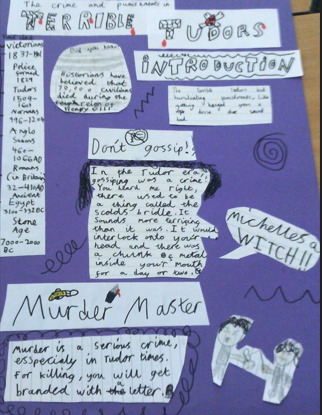 The crime and punishments in
TERRIBLE TUDORS
Victorians
1837-1901
Police
formed
1829
Tudors
1509-
Normans
Anglo
Saxons
460-
1066AD
Romans
(in Britain)
32-410AD
Ancient
Egypt
Stone
Age
7000-2000
BC
Did you know
Historians have
believed that
70,000 civilians
died during the
tough reign of
Henry VIII
INTRODUCTION
The terrible tudors had
humiliating punishments, like
getting hanged
Don't gossip!
In the Tudor era,
gossiping was a crime.
You heard me right,
there used to be
a thing called the
scolds bridle. It
sounds more terrifying
than it was. It would
interlock onto your
head and there was
a chunk of metal
inside your mouth
for a day or two.
Michelles a
WITCH!!
Murder Master
Murder is a serious crime,
esspecialy in Tudor times.
For killing, you will get
branded with a letter.